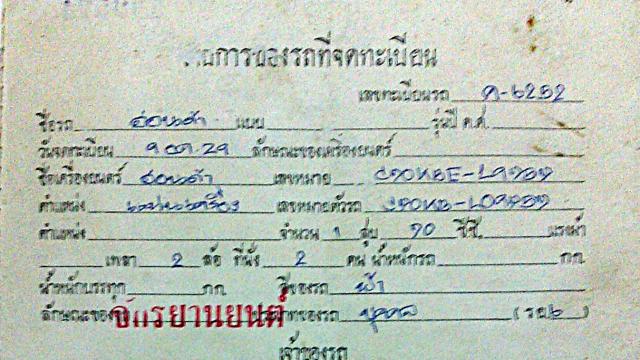 รายการของรถที่จดทะเบียน
เลขทะเบียนรถ ค-6252
ชื่อรถ ฮอนด้า แบบ รุ่นปี ค.ศ.
วันจดทะเบียน 9 ตค. 29 ลักษณะของเครื่องยนต์
ชื่อเครื่องยนต์ ฮอนด้า เลขหมาย
ตำแหน่ง เลขหมายตัวรถ
ตำแหน่ง จำนวน 1 สูบ 90 ซีซี. แรงม้า
เพลา 2 ล้อ ที่นั่ง 2 คน น้ำหนักรถ กก
น้ำหนักบรรทุก กก สีของรถ ฟ้า
ลักษณะของรถ จักรยานยนต์ ประเภทของรถ (รย
เจ้าของรถ